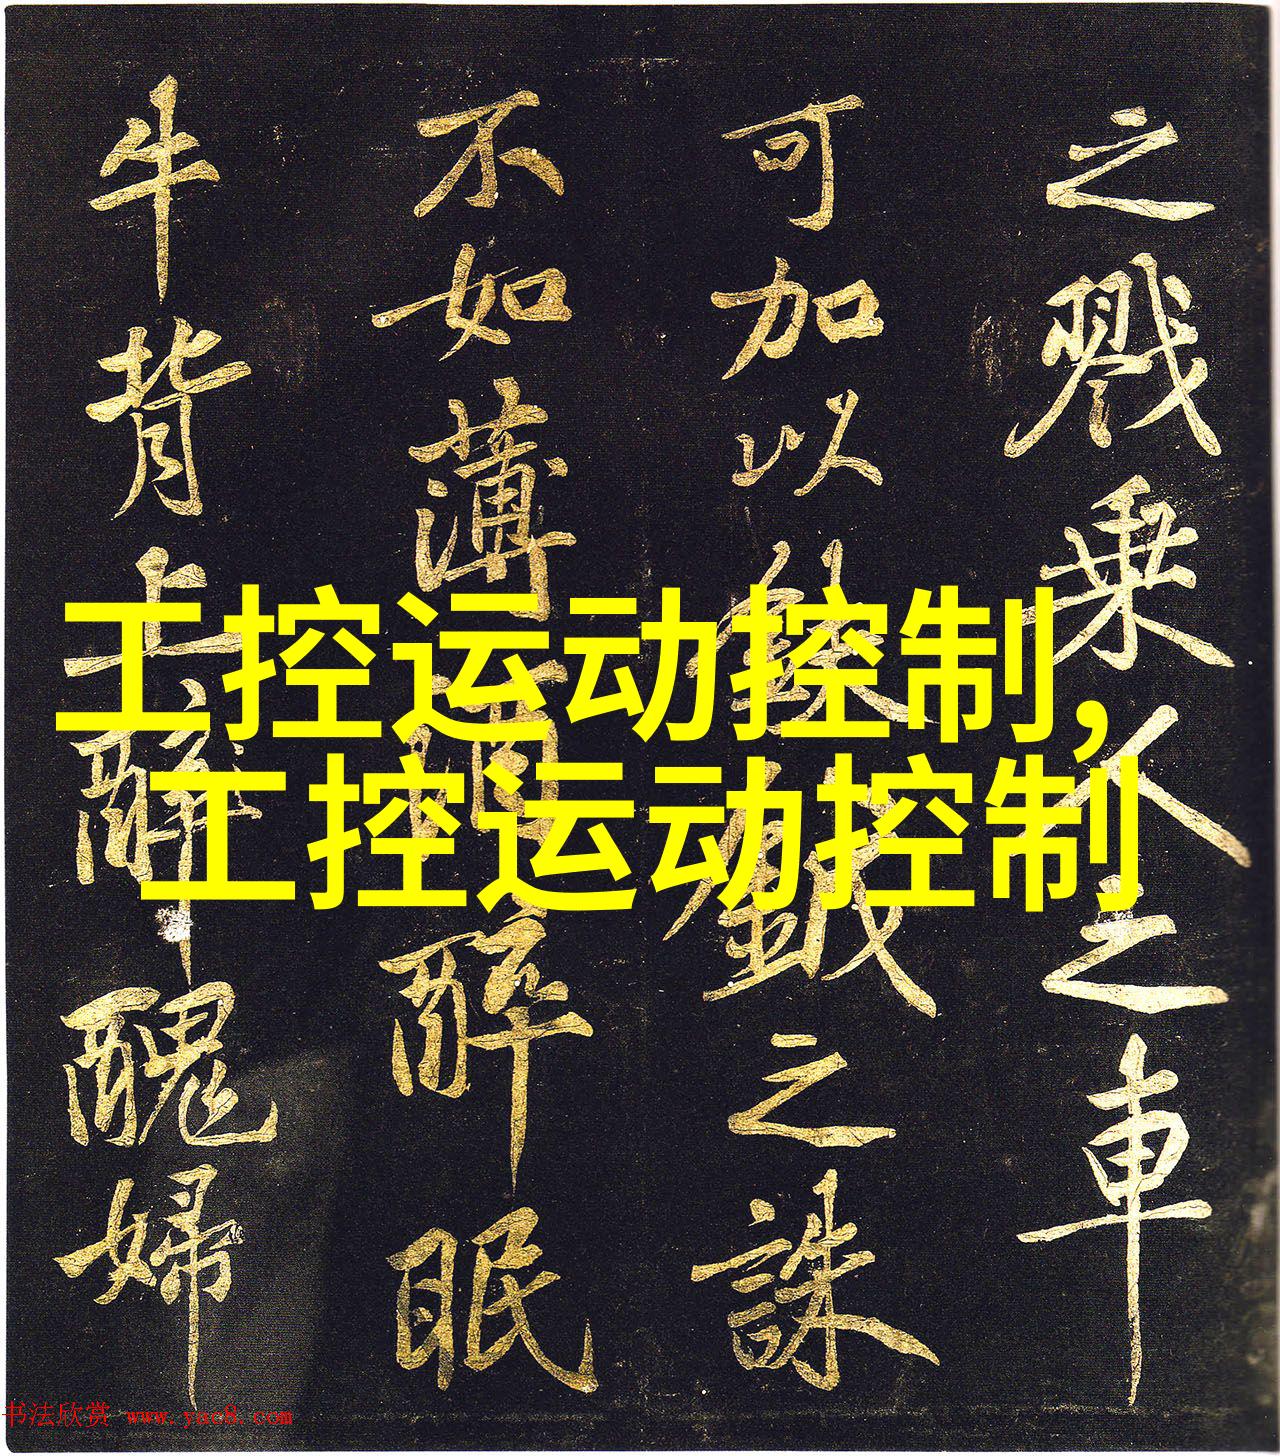 之戮乘人之車
可加以鈇鉞之誅
不如薄酒醉眠
牛背上醉醜婦
工控运动控制,
工控运动控制
书法欣赏 www.yac8.com